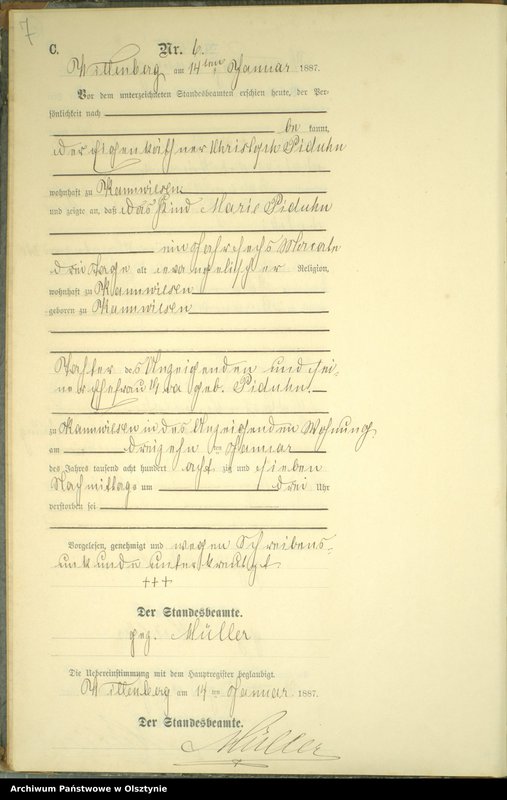 7
C.
Nr. 6.
Wittenberg am 14ten Januar 1887.
Vor dem unterzeichneten Standesbeamten erschien heute, der Per-
sönlichkeit nach
be kannt,
der Eigenkäthner Christoph Piduhn
wohnhaft zu Kannwiesen
und zeigte an, daß das Kind Marie Piduhn
ein Jahr sechs Monate
drei Tage alt evangelischer Religion,
wohnhaft zu Kannwiesen
geboren zu Kannwiesen
Tochter des Anzeigenden und sei-
ner Ehefrau Eva geb. Piduhn.
zu Kannwiesen in des Anzeigenden Wohnung
am dreizehn ten Januar
des Jahres tausend acht hundert acht zig und sieben
Nachmittags um drei Uhr
verstorben sei
Vorgelesen, genehmigt und wegen Schreibens-
unkunde unterkreuzt
+++
Der Standesbeamte.
gez. Müller
Die Uebereinstimmung mit dem Hauptregister beglaubigt.
Wittenberg am 14ten Januar 1887.
Der Standesbeamte.
Müller
Archiwum Państwowe w Olsztynie